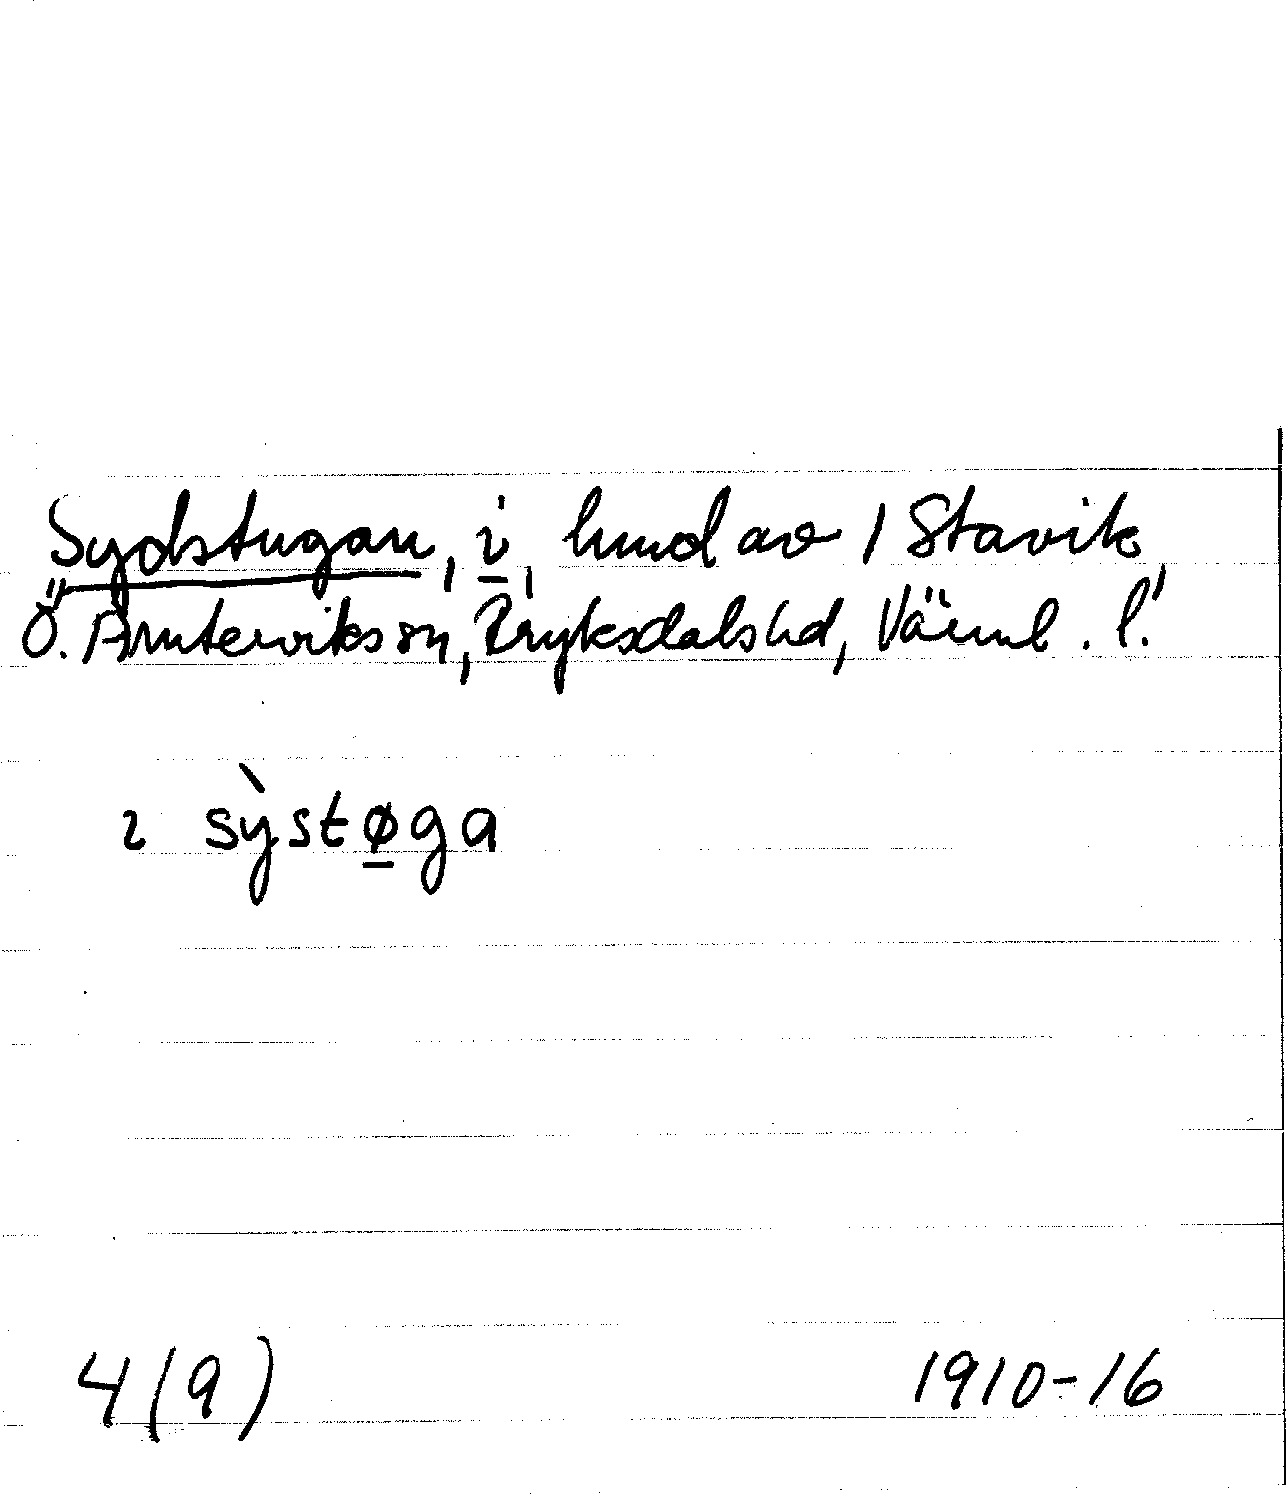 Sydstugan, i, hmd av 1 Stavik,
Ö. Ämterviks sn, Fryksdals hd, Värml. l.
ı sỳstø̱ga
4(9) 1910-16